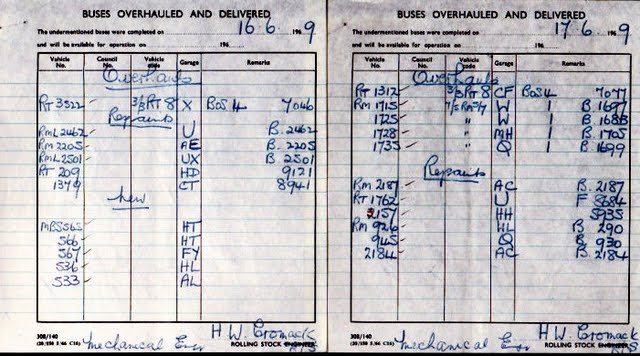 BUSES OVERHAULED AND DELIVERED
The undermentioned buses were completed on 16-6 1969
and will be available for operation on 196
Vehicle No. Council No. Vehicle code Garage Remarks
Overhauls
RT 3522 3/3RT8 X BOS 4 7046
Repaints
RML2462 U B. 2462
RM 2205 AE B. 2205
RML2501 UX B. 2501
RT 209 HD 9121
1379 CT 8941
New
MBS565 HT
566 HT
567 FY
536 HL
533 AL
308/140
Mechanical Eng
H W Cromack
ROLLING STOCK ENGINEER
BUSES OVERHAULED AND DELIVERED
The undermentioned buses were completed on 17-6 1969
and will be available for operation on 196
Vehicle No. Council No. Vehicle code Garage Remarks
Overhauls
RT 1312 3/3RT8 CF BOS4 7077
RM 1715 W 1 B. 1697
1725 " W 1 B. 1688
1728 " MH 1 B. 1705
1735 " Q 1 B. 1699
Repaints
RM 2187 AC B. 2187
RT 1762 U F 8684
2157 HH 5935
RM 926 HL B 290
945 Q B 930
2184 AC B. 2184
308/140
Mechanical Eng
H W Cromack
ROLLING STOCK ENGINEER